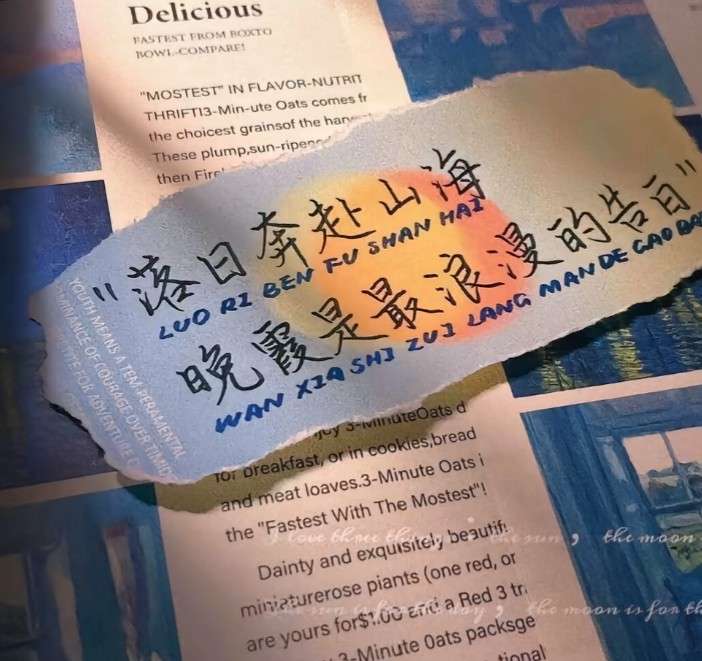 Delicious
FASTEST FROM BOXTO
BOWL-COMPARE!
"MOSTEST" IN FLAVOR-NUTRIT
THRIFTI3-Min-ute Oats comes fr
the choicest grainsof the
These plump,sun-ripened
then
"落日奔赴山海
LUO RI BEN FU SHAN HAI
晚霞是最浪漫的告白"
WAN XIA SHI ZUI LANG MAN DE GAO BAI
YOUTH MEANS A TEM PERAMENTAL
OF COURAGE OVER
FOR ADVENTURE
3-MinuteOats d
for breakfast, or in cookies,bread
and meat loaves.3-Minute Oats i
the "Fastest With The Mostest"!
I love three things, the sun, the moon
Dainty and exquisitely beautif
miniaturerose piants (one red, or
the sun is for the day, the moon is for th
are yours for$1.00 and a Red 3 tr
3-Minute Oats packsge
tional